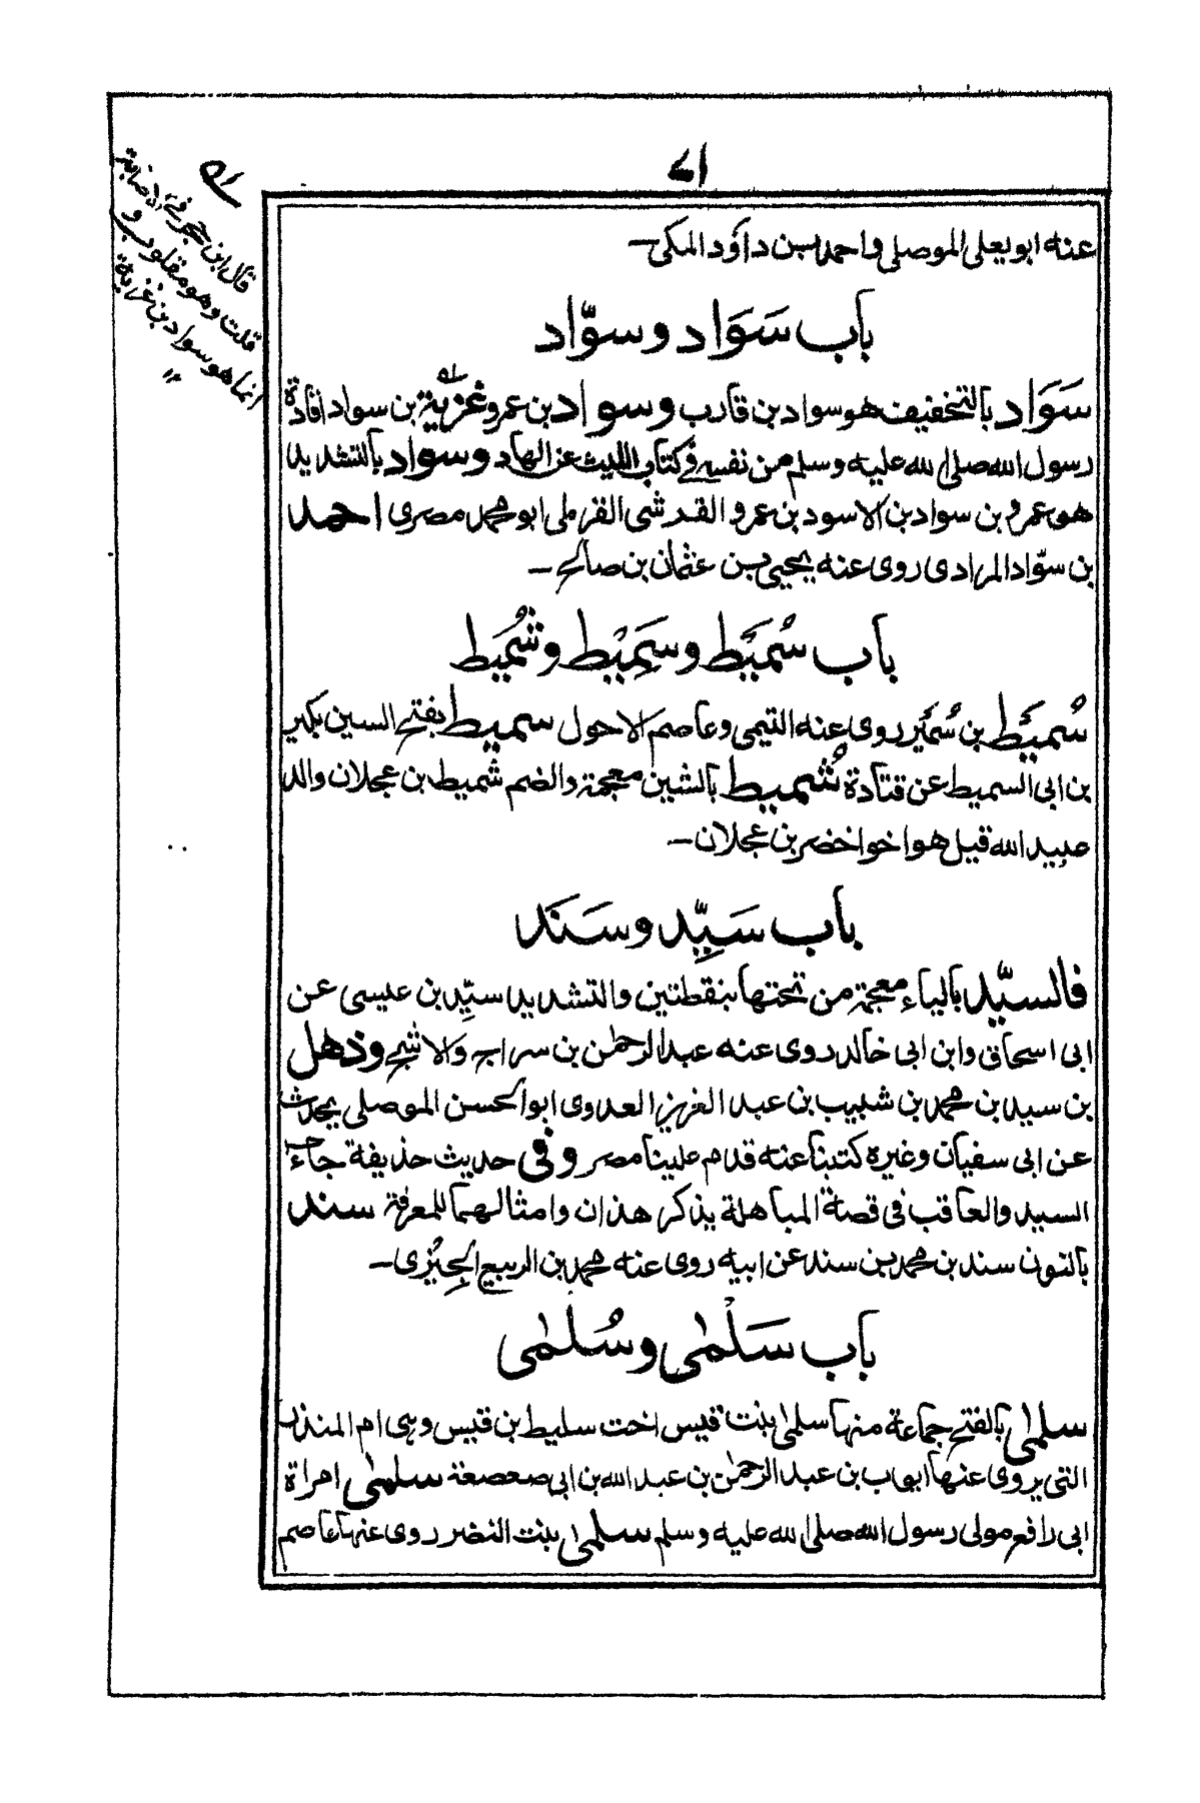 ٧١
عنه ابو يعلى الموصلي واحمد بن داؤد المكى—
باب سَوَاد وسوّاد
سَوَاد بالتخفيف هو سواد بن قارب وسواد بن عمرو غزية بن سواد اقادة
رسول الله صلى الله عليه وسلم من نفسه في كتاب الليث عن الهاد وسواد بالتشديد
هو عمرو بن سواد بن الاسود بن عمرو القرشى ابو محمد مصرى احمد
بن سوّاد المرادى روى عنه يحيى بن عثمان بن صالح—
باب سُمَيْط وسَمِيْط وشُمَيط
سُمَيْط بن سُمَيْر روى عنه التيمى وعاصم الاحول سميط بفتح السين بكير
بن ابى السميط عن قتادة شُميط بالشين معجمة والضم شميط بن عجلان والد
عبيد الله قيل هو اخو اخضر بن عجلان—
باب سَيِّد وسَنَد
فالسيّد بالياء معجمة من تحتها بنقطتين والتشديد سيِّد بن عيسى عن
ابى اسحاق وابن ابى خالد روى عنه عبد الرحمٰن بن سراج والاشج وذهل
بن سيد بن محمد بن شبيب بن عبد العزيز العدوى ابو الحسن الموصلى يحدث
عن ابى سفيان وغيره كتبنا عنه قدم علينا مصر وفى حديث حذيفة جاء
السيد والعاقب فى قصة المباهلة يذكر هذان وامثالهما للمعرفة سند
بالنون سند بن محمد بن سند عن ابيه روى عنه محمد بن الربيع الجِيْزى—
باب سَلْمٰى وسُلْمٰى
سلمٰى بالفتح جماعة منها سلمى بنت قيس اخت سليط بن قيس وهى ام المنذر
التى يروى عنها ايوب بن عبد الرحمٰن بن عبد الله بن ابى صعصعة سلمٰى امراة
ابى رافع مولى رسول الله صلى الله عليه وسلم سلمٰى بنت النضر روى عنها عاصم
قال ابن حجر فى الاصابة
قلت وهو مقلوب و
انما هو سواد بن غزية
١٢